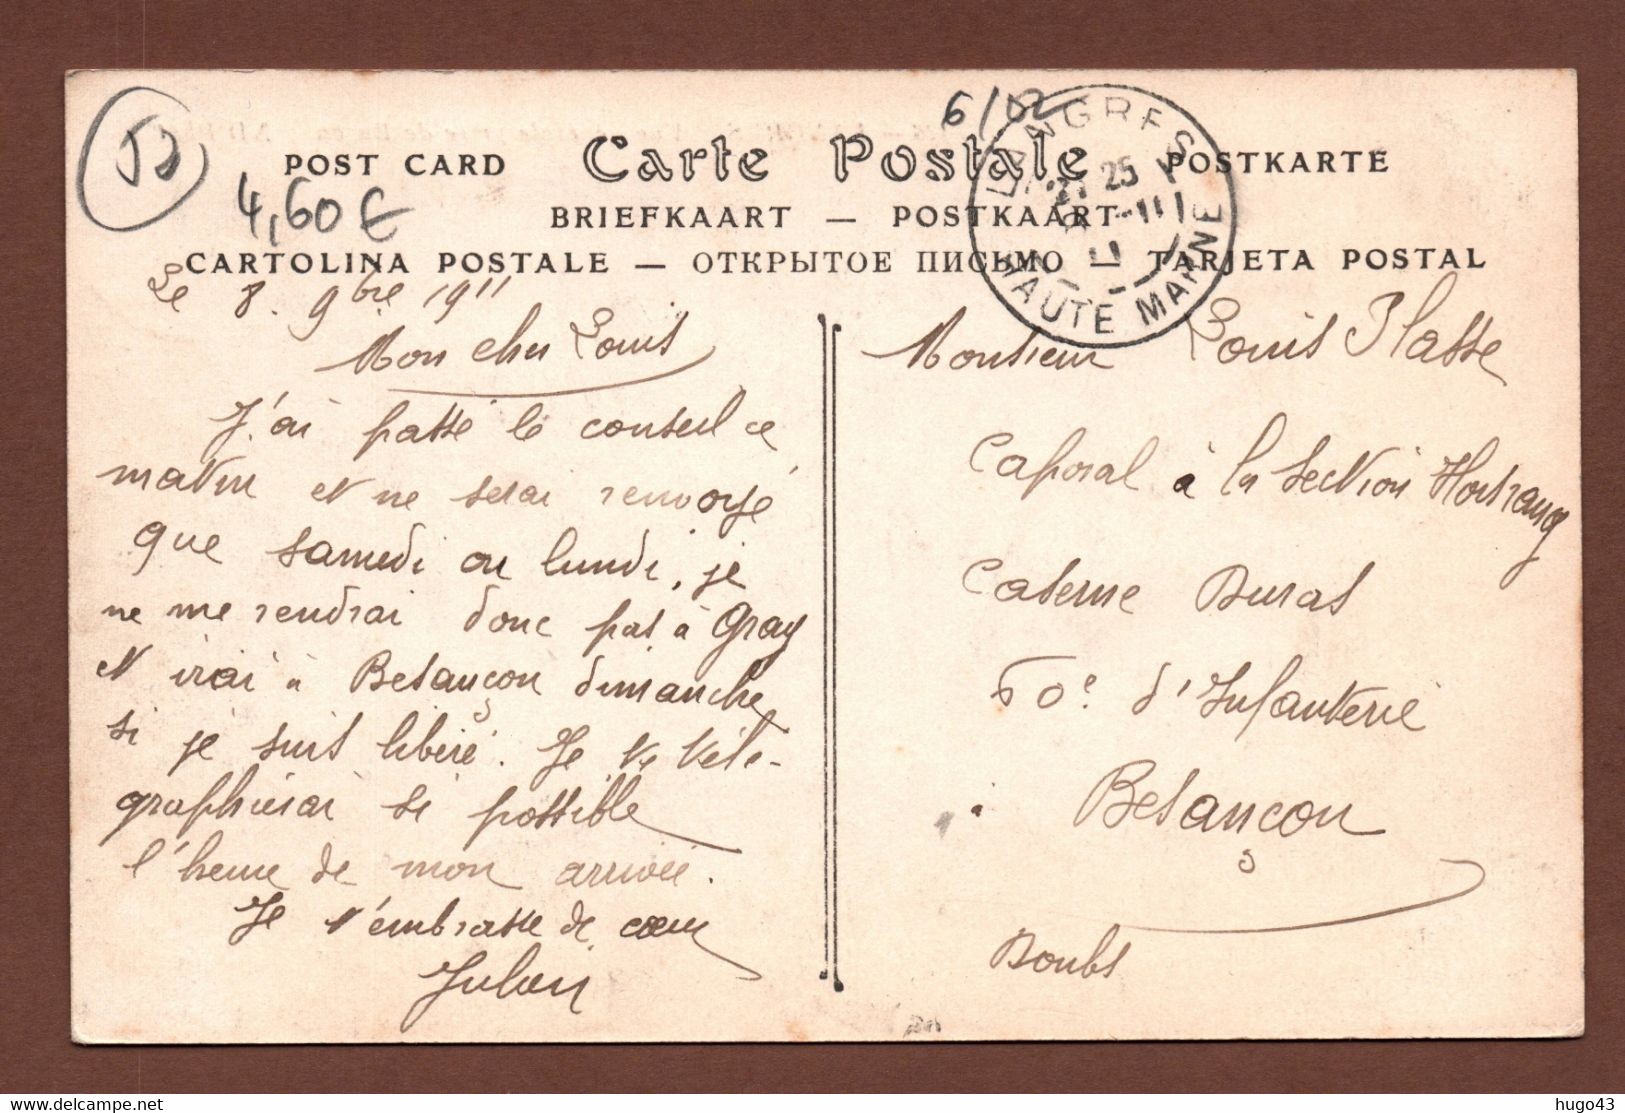 52
6/02
LANGRES
25
-11
HAUTE MARNE
4,60 €
POST CARD Carte Postale POSTKARTE
BRIEFKAART — POSTKAART
CARTOLINA POSTALE — ОТКРЫТОЕ ПИСЬМО — TARJETA POSTAL
Le 8. 9bre 1911
Mon cher Louis
J'ai passé le conseil ce
matin et ne serai renvoyé
que samedi ou lundi, je
ne me rendrai donc pas à Gray
et irai à Besançon dimanche
si je suis libéré. Je te télé-
graphierai si possible
l'heure de mon arrivée.
Je t'embrasse de cœur
Julien
Monsieur Louis Plasse
Caporal à la Section Hors rang
Caserne Duras
60e d'Infanterie
à Besançon
Doubs
hugo43